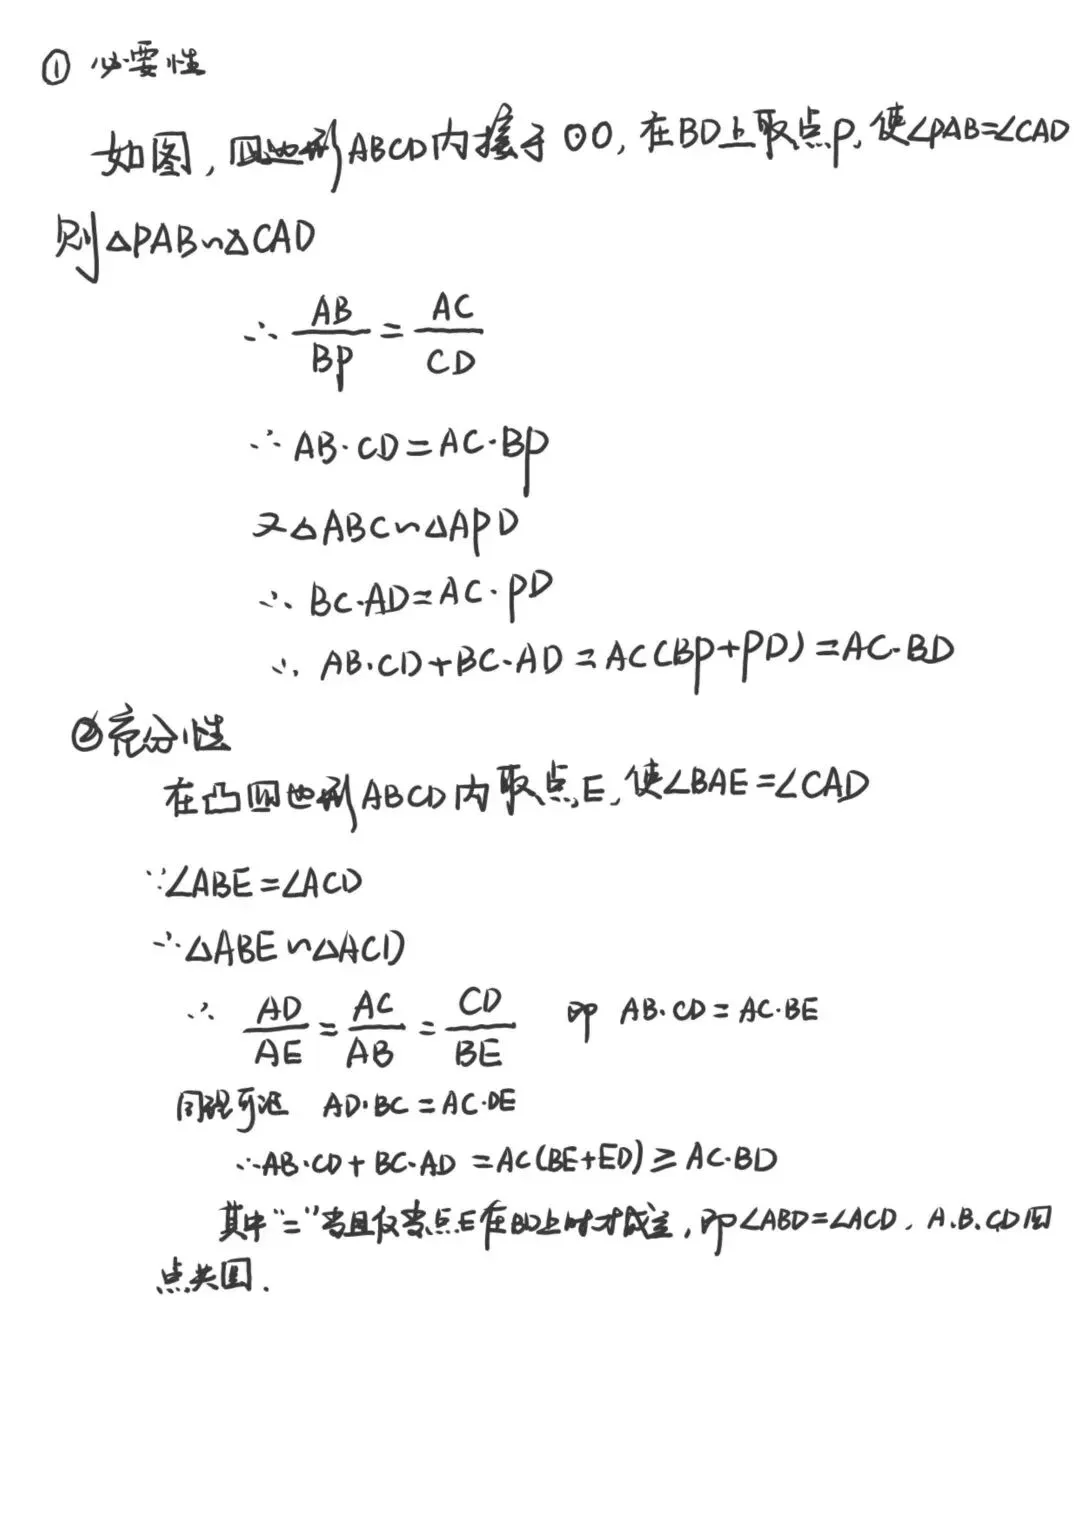 ① 必要性
如图,四边形ABCD内接于⊙O,在BD上取点P,使∠PAB=∠CAD
则△PAB∽△CAD
∴ AB/BP = AC/CD
∴ AB·CD=AC·BP
又△ABC∽△APD
∴ BC·AD=AC·PD
∴ AB·CD+BC·AD=AC(BP+PD)=AC·BD
②充分性
在凸四边形ABCD内取点E,使∠BAE=∠CAD
∵∠ABE=∠ACD
∴△ABE∽△ACD
∴ AD/AE = AC/AB = CD/BE 即 AB·CD=AC·BE
同理可证 AD·BC=AC·DE
∴AB·CD+BC·AD=AC(BE+ED)≥AC·BD
其中“=”当且仅当点E在BD上时才成立,即∠ABD=∠ACD、A.B.CD四
点共圆.